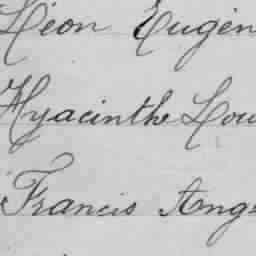 Léon Eugén
Hyacinthe Lou
Francis Ang